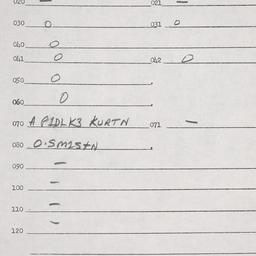 020 — 021 —
030 0 031 0
040 0
041 0 042 0
050 0
060 0
070 KURTN 071 —
080
090 —
100 —
110 —
120 —